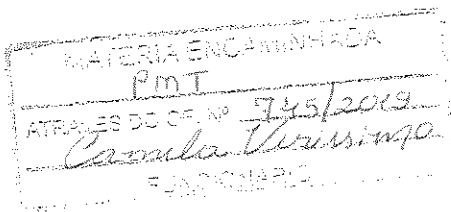 MATERIA ENCAMINHADA
PMT
ATRAVES DO OF. Nº 745/2019
Camila Verissimo
FUNCIONARIO